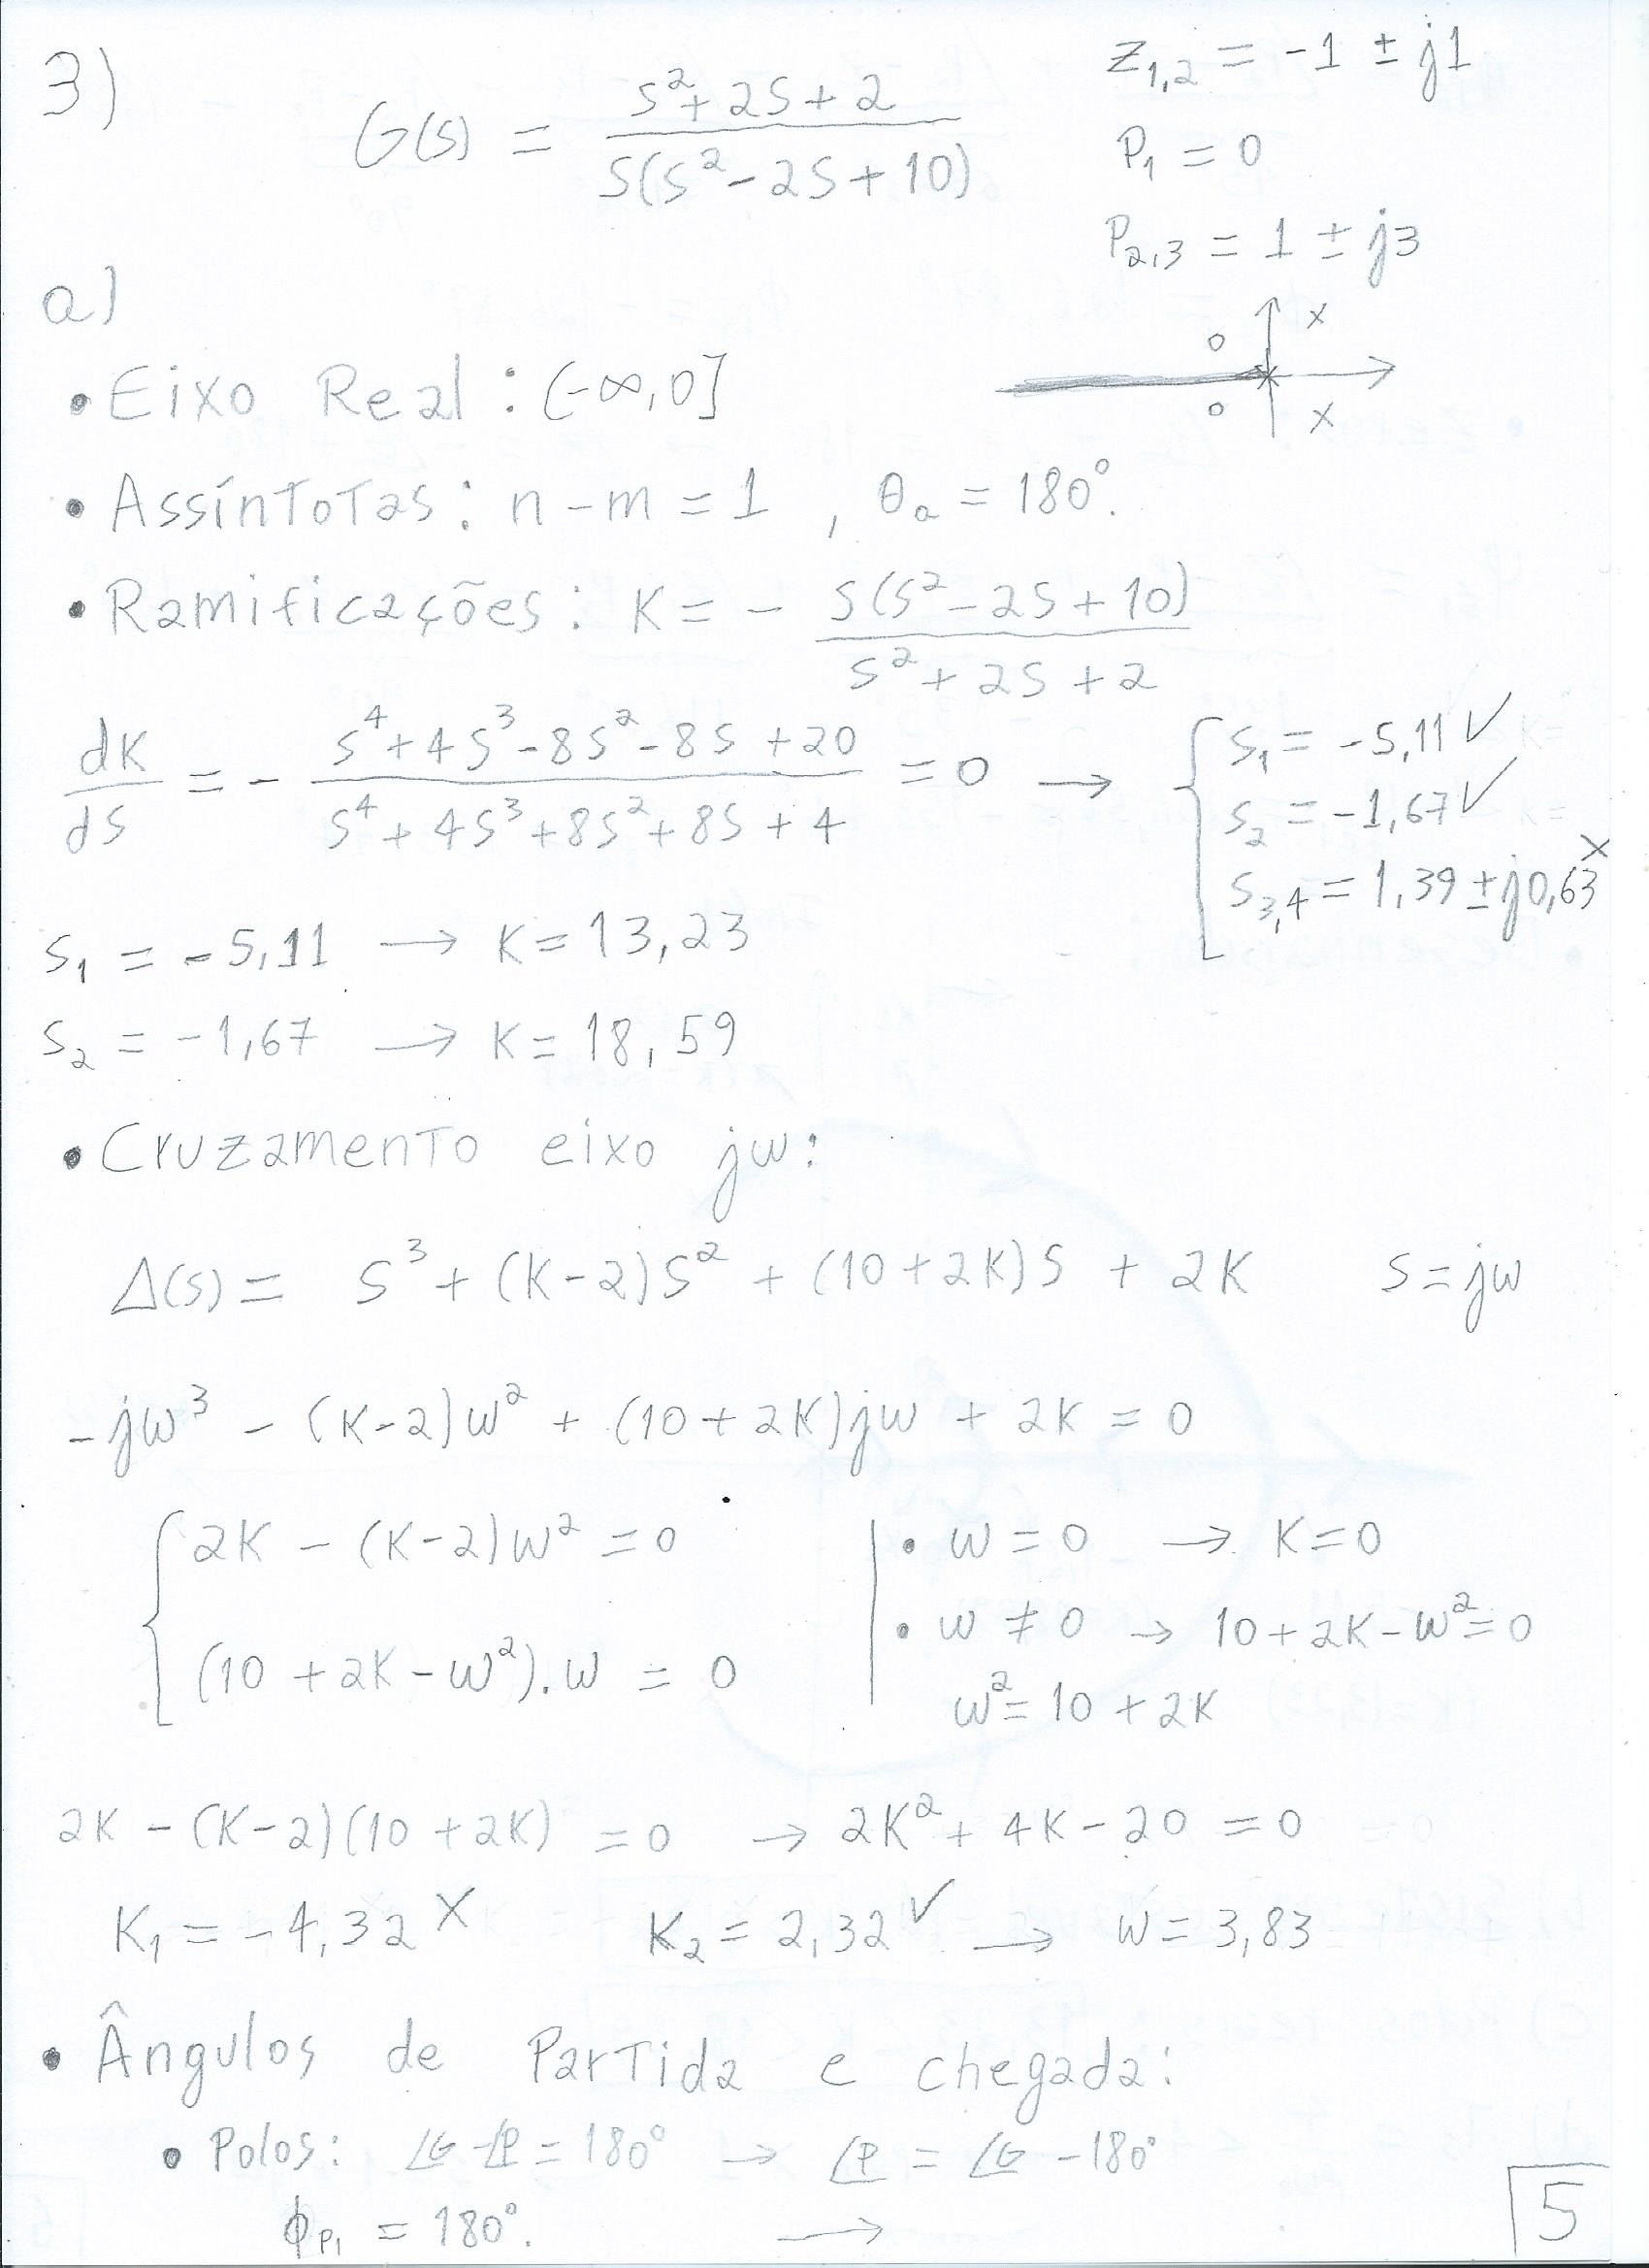 3)
G(s) = (s² + 2s + 2) / (s(s² - 2s + 10))
z₁,₂ = -1 ± j1
P₁ = 0
P₂,₃ = 1 ± j3
a)
• Eixo Real: (-∞, 0]
• Assíntotas: n - m = 1 , θₐ = 180°.
• Ramificações: K = - s(s² - 2s + 10) / (s² + 2s + 2)
dK/ds = - (s⁴ + 4s³ - 8s² - 8s + 20) / (s⁴ + 4s³ + 8s² + 8s + 4) = 0 →
s₁ = -5,11 ✓
s₂ = -1,67 ✓
s₃,₄ = 1,39 ± j0,63 X
s₁ = -5,11 → K = 13,23
s₂ = -1,67 → K = 18,59
• Cruzamento eixo jw:
Δ(s) = s³ + (K-2)s² + (10+2K)s + 2K s = jw
-jw³ - (K-2)w² + (10+2K)jw + 2K = 0
2K - (K-2)w² = 0
(10 + 2K - w²).w = 0
• w = 0 → K = 0
• w ≠ 0 → 10 + 2K - w² = 0
w² = 10 + 2K
2K - (K-2)(10 + 2K) = 0 → 2K² + 4K - 20 = 0
K₁ = -4,32 X K₂ = 2,32 ✓ → w = 3,83
• Ângulos de Partida e chegada:
• Polos: ∠G - ∠P = 180° → ∠P = ∠G - 180°
ϕP₁ = 180°. →
5